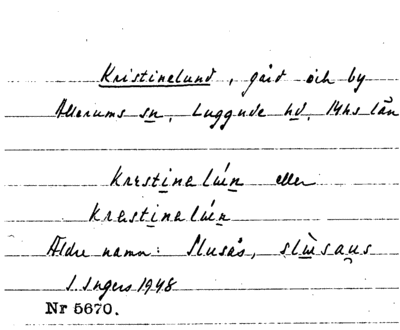 Kristinelund, gård och by
Allerums sn, Luggude hd, Mhs län
Kristinelún eller
Krestinelún
Äldre namn: Slusås, slùsaus
I. Ingers 1948
Nr 5670.